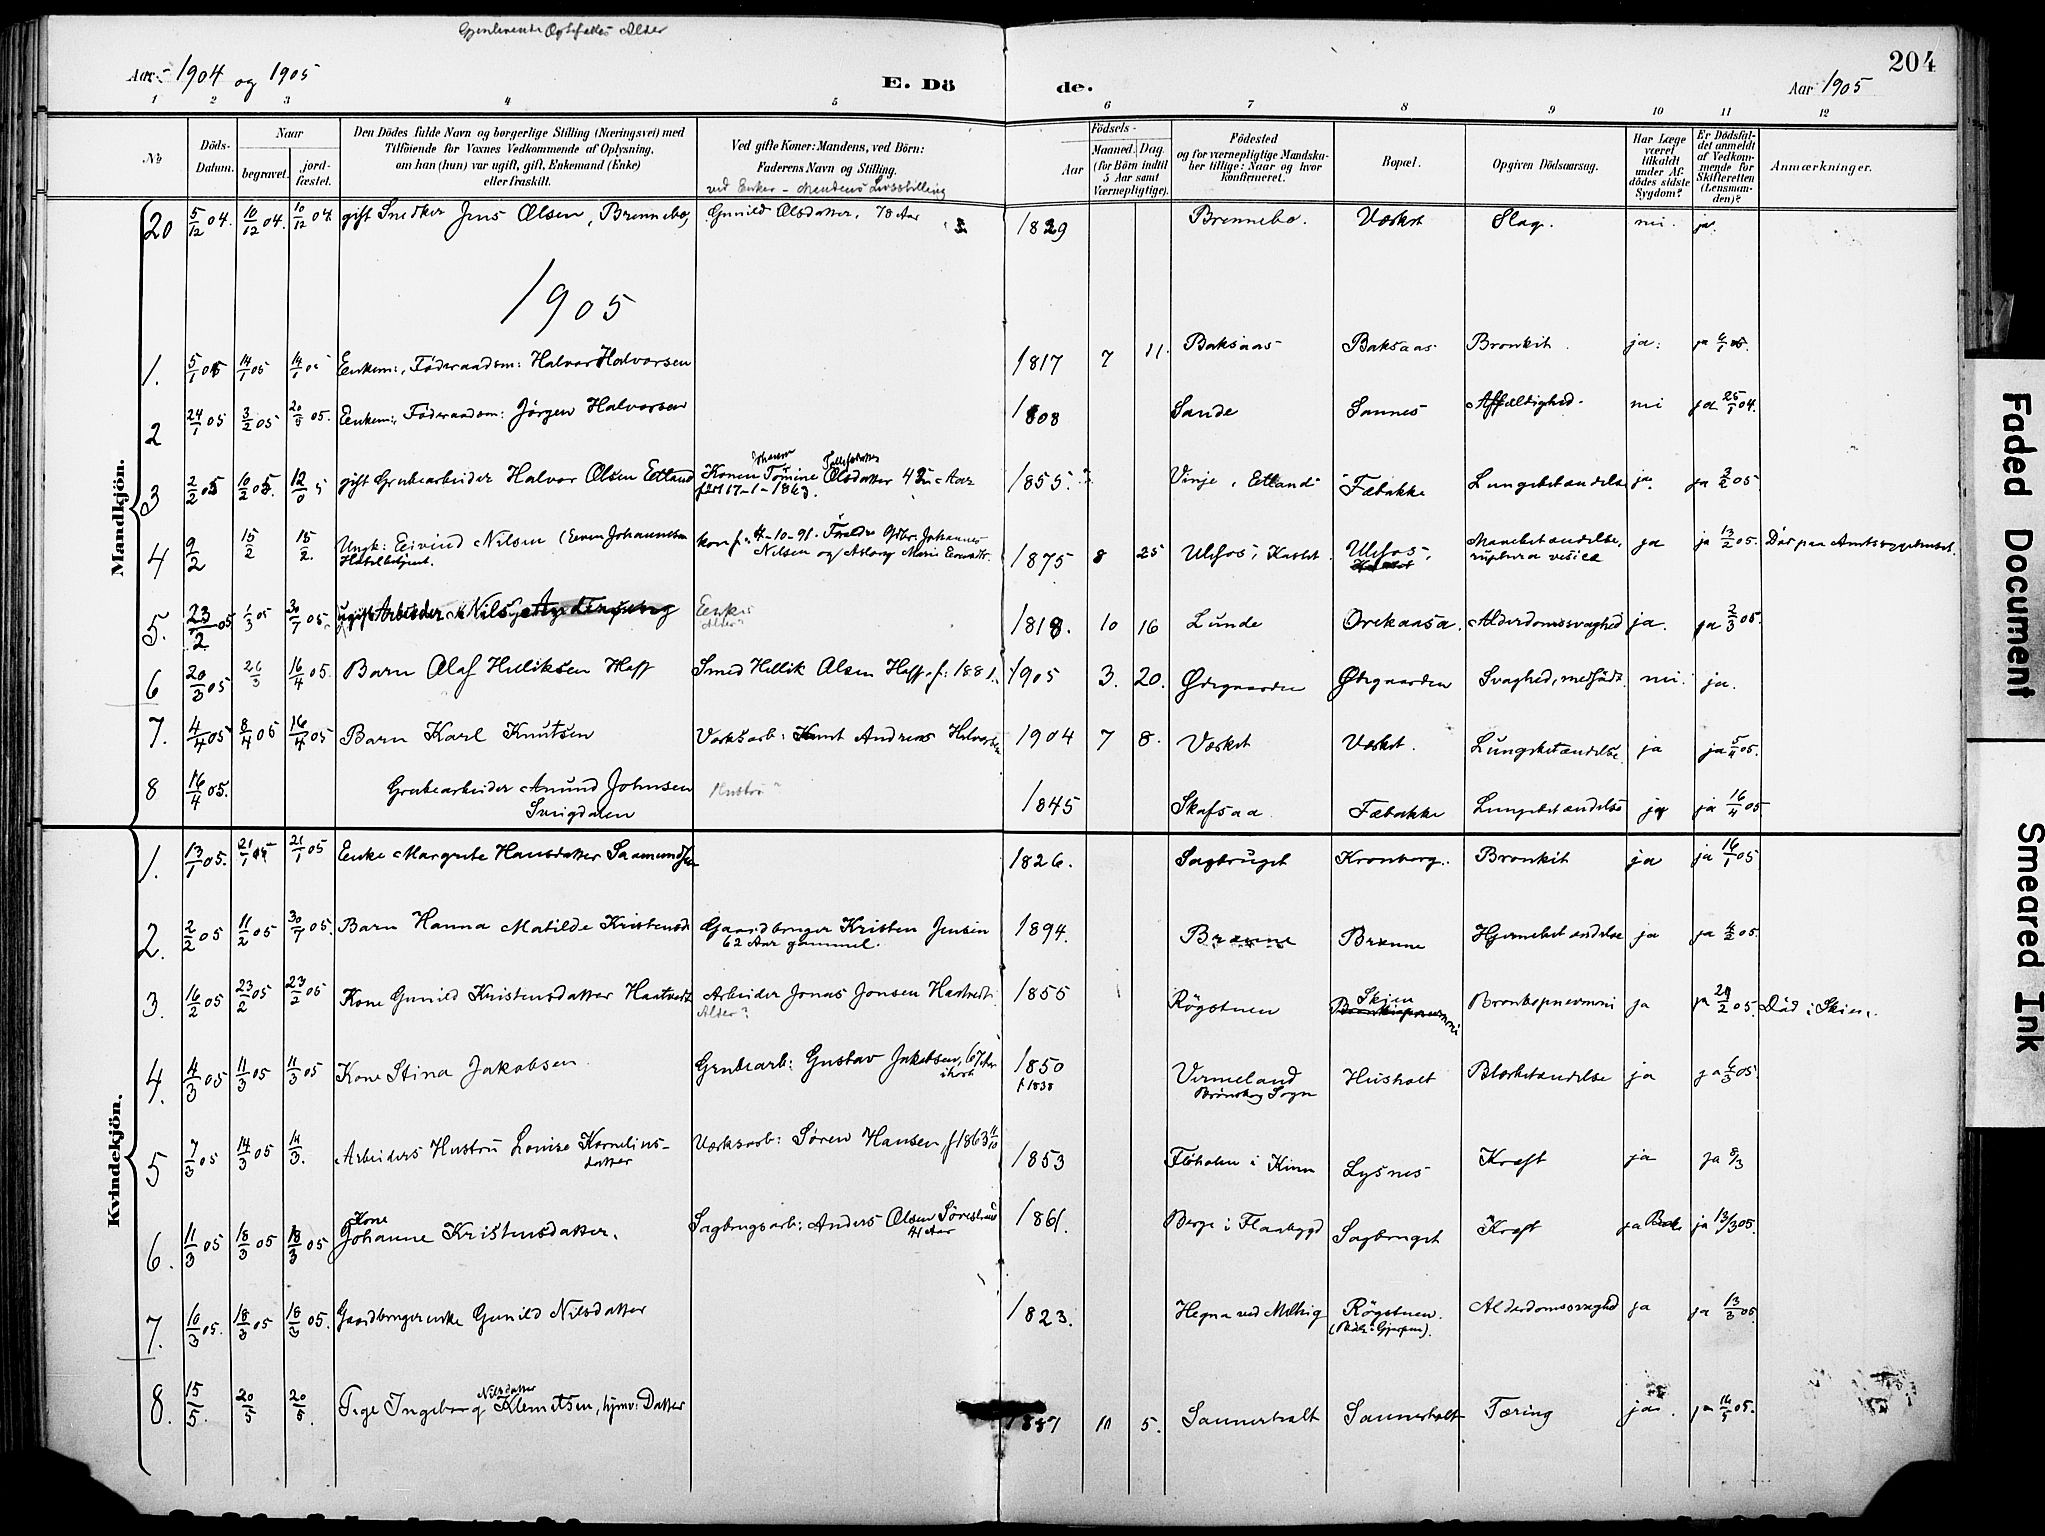 Gjenlevende Ægtefælles Alder
Aar 1904 og 1905
E. Dö
de.
Aar 1905
204
1 2 3 4 5 6 7 8 9 10 11 12
No
Döds-Datum.
Naar
begravet.
jord-fæstet.
Den Dödes fulde Navn og borgerlige Stilling (Næringsvei) med
Tilföiende for Voxnes Vedkommende af Oplysning,
om han (hun) var ugift, gift, Enkemand (Enke)
eller fraskilt.
Ved gifte Koner: Mandens, ved Börn:
Faderens Navn og Stilling.
ved Enker - Mandens Livsstilling
Födsels-
Aar
Maaned.
Dag.
(for Börn indtil
5 Aar samt
Værnepligtige).
Födested
og for værnepligtige Mandska-
ber tillige: Naar og hvor
konfirmeret.
Bopæl.
Opgiven Dödsaarsag.
Har Læge
været
tilkaldt
under Af-
dödes sidste
Sygdom?
Er Dödsfal-
det anmeldt
af Vedkom-
mende for
Skifteretten
(Lensman-
den)?
Anmærkninger.
Mandkjön.
20 5/12 04. 10/12 04. 10/12 04. gift Snedker Jens Olsen, Brennebo, Gunild Olsdatter, 78 Aar 1829 Brennebo. Værket Slag. nei. ja.
1905
1. 5/1 05 14/1 05 14/1 05 Enkem:, Föderaadsm: Halvor Halvorsen 1817 7 11. Baksaas Baksaas Bronkit. ja: ja 6/1 05.
2 24/1 05 3/2 05 Enkem:, Föderaadsm: Jörgen Halvorsen 1808 Sande Sannes Affældighed. nei ja 25/1 04.
3 2/2 05 10/2 05. gift Grubearbeider Halvor Olsen Etland Konen Tomine Olsdatter 42 Aar
Johanne Tollefsdatter
født 17-1-1863.
1855. Vinje, Etland Fæbakke Lungebetændelse ja. ja 3/2 05.
4 9/2 15/2 15/2. Ungk: Eivind Nilsen (Even Johannesen
konf. 4-10-91. Forældre Gbr. Johannes
Nilsen og Aslaug Marie
1875 8 25 Ulefos, Kastet. Ulefos, Mavebetændelse,
ruptura vesica ja ja 13/2 05. Död paa Amtssygehuset.
5. 23/2 05 1/3 05 30/7 05. ugift Arbeider Nils Enke
Alder?
1818. 10 16 Lunde Orekaasa. Alderdomssvaghed ja. ja 2/3 05.
6 20/3 05 26/3 16/4 05. Barn Olaf Helliksen Haff Smed Hellik Olsen Haff. f: 1881. 1905 3. 20. Ødegaarden Ødegaarden Svaghed, medfödt. nei. ja.
7. 4/4 05 8/4 05 16/4 05 Barn Karl Knutsen Værksarb: Knut Andreas Halvorsen 1904 7 8. Værket Værket. Lungebetændelse ja ja 5/4 05.
8 16/4 05. Grubearbeider Anund Johnsen
Hustru?
1845 Skafsaa Fæbakke Lungebetændelse ja ja 16/4 05
Kvindekjön.
1. 13/1 05. 21/1 05 21/1 05 Enke Margrete Hansdatter Saamundsen 1826. Sagbruget Kronborg. Bronkit ja ja 16/1 05.
2. 2/2 05 11/2 05 30/7 05. Barn Hanna Matilde Kristensd Gaardbruger Kristen Jensen
62 Aar gammel. 1894. Brænne Brænne Hjernebetændelse ja ja 4/2 05.
3. 16/2 05 23/2 05 23/2 05 Kone Gunild Kristensdatter Hastvedt Arbeider Jonas Jonsen Hastvedt
Alder?
1855 Rögstuen Skien Bronkopnevmoni ja ja 20/2 05. Död i Skien.
4. 4/3 05 11/3 05 11/3 05 Kone Stina Jakobsen Grubearb: Gustav Jakobsen, 67 Aar
1850
f 1838
Vermeland
Sogn Husholt Blærbetændelse ja ja 6/3 05.
5 7/3 05 14/3 05 14/3. Arbeiders Hustru Lovise Kornelius-
datter
Værksarb: Sören Hansen, f 1863 11/10 1853 Flöholm i Kinn Lysnes Kræft ja ja 8/3
6. 11/3 05 18/3 05 18/3 05 Kone
Johanne Kristensdatter. Sagbrugsarb: Anders Olsen
41 Aar
1861. Berge i Flaabygd Sagbruget Kræft ja ja 13/3 05.
7. 10/3 05. 18/3 05 18/3 05. Gaardbrugerenke Gunild Nilsdatter 1823. Hegna ved Melteig Rögstuen.
Alderdomssvaghed ja ja 13/3 05.
8. 15/5. 20/5 20/5. Pige Ingeborg Nilsdatter Klemetsen, hjmv: Datter 1887 10 5. Sannerholt Sannerholt Tæring ja. ja 16/5 05.
Faded Document
Smeared Ink